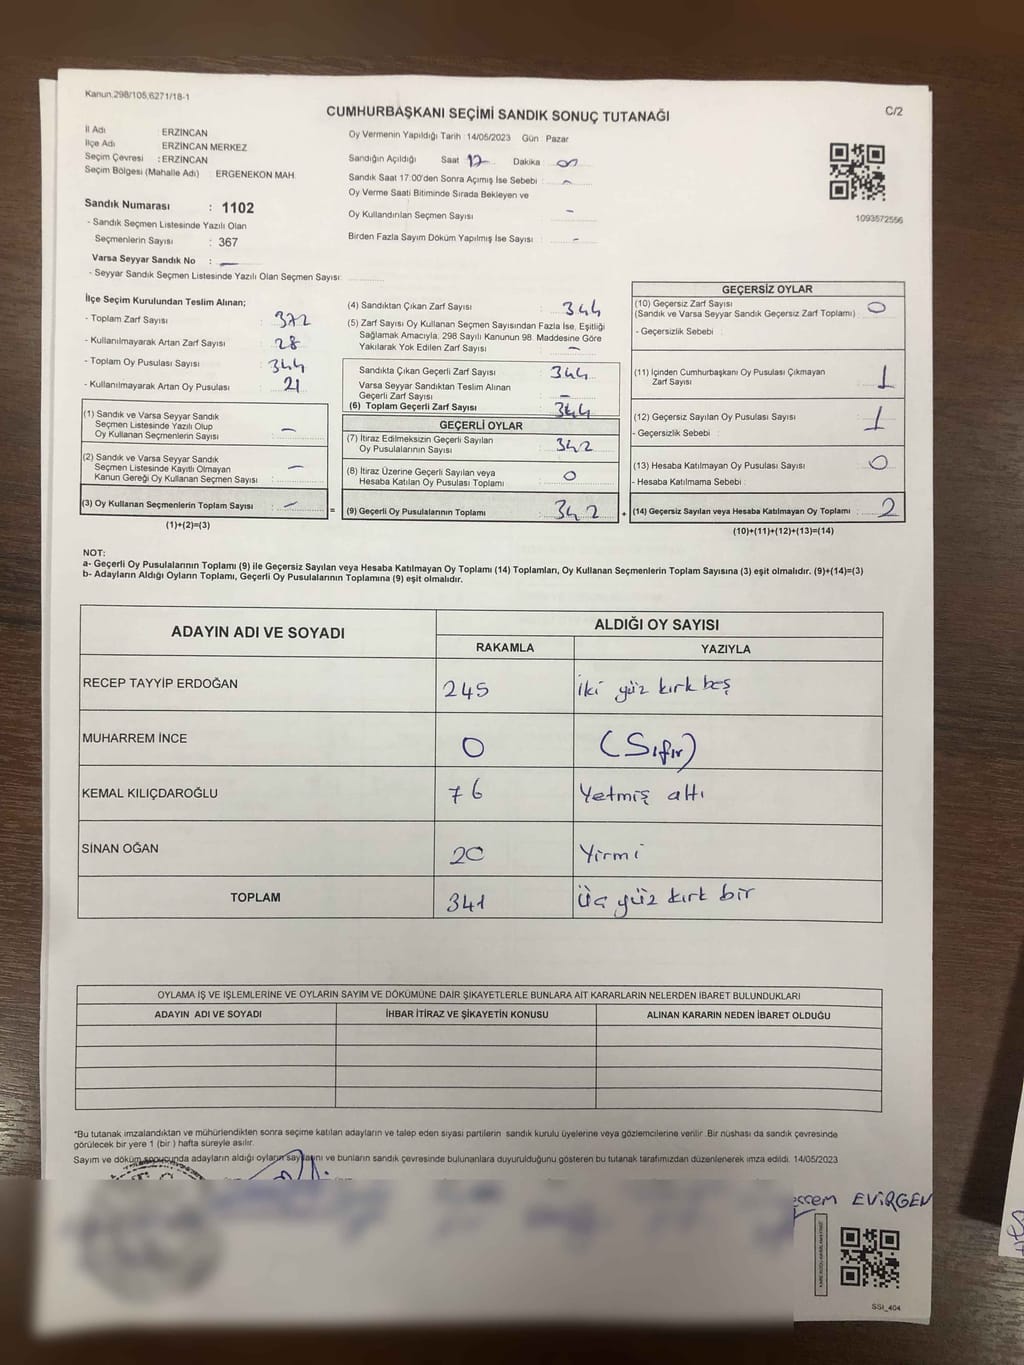 Kanun.298/105,6271/18-1
CUMHURBAŞKANI SEÇİMİ SANDIK SONUÇ TUTANAĞI
C/2
İl Adı : ERZİNCAN
İlçe Adı : ERZİNCAN MERKEZ
Seçim Çevresi : ERZİNCAN
Seçim Bölgesi (Mahalle Adı) : ERGENEKON MAH.
Sandık Numarası : 1102
- Sandık Seçmen Listesinde Yazılı Olan
Seçmenlerin Sayısı : 367
Varsa Seyyar Sandık No : -
- Seyyar Sandık Seçmen Listesinde Yazılı Olan Seçmen Sayısı:
Oy Vermenin Yapıldığı Tarih : 14/05/2023 Gün : Pazar
Sandığın Açıldığı Saat 17 Dakika :
Sandık Saat 17:00'den Sonra Açımış İse Sebebi : -
Oy Verme Saati Bitiminde Sırada Bekleyen ve
Oy Kullandırılan Seçmen Sayısı : -
Birden Fazla Sayım Döküm Yapılmış İse Sayısı : -
1093572556
İlçe Seçim Kurulundan Teslim Alınan;
- Toplam Zarf Sayısı : 372
- Kullanılmayarak Artan Zarf Sayısı : 28
- Toplam Oy Pusulası Sayısı : 344
- Kullanılmayarak Artan Oy Pusulası : 21
(1) Sandık ve Varsa Seyyar Sandık
Seçmen Listesinde Yazılı Olup
Oy Kullanan Seçmenlerin Sayısı : -
(2) Sandık ve Varsa Seyyar Sandık
Seçmen Listesinde Kayıtlı Olmayan
Kanun Gereği Oy Kullanan Seçmen Sayısı : -
(3) Oy Kullanan Seçmenlerin Toplam Sayısı : -
(1)+(2)=(3)
(4) Sandıktan Çıkan Zarf Sayısı : 344
(5) Zarf Sayısı Oy Kullanan Seçmen Sayısından Fazla İse, Eşitliği
Sağlamak Amacıyla, 298 Sayılı Kanunun 98. Maddesine Göre
Yakılarak Yok Edilen Zarf Sayısı : -
Sandıkta Çıkan Geçerli Zarf Sayısı : 344
Varsa Seyyar Sandıktan Teslim Alınan
Geçerli Zarf Sayısı : -
(6) Toplam Geçerli Zarf Sayısı : 344
GEÇERLİ OYLAR
(7) İtiraz Edilmeksizin Geçerli Sayılan
Oy Pusulalarının Sayısı : 342
(8) İtiraz Üzerine Geçerli Sayılan veya
Hesaba Katılan Oy Pusulası Toplamı : 0
= (9) Geçerli Oy Pusulalarının Toplamı : 342 +
GEÇERSİZ OYLAR
(10) Geçersiz Zarf Sayısı : 0
(Sandık ve Varsa Seyyar Sandık Geçersiz Zarf Toplamı)
- Geçersizlik Sebebi :
(11) İçinden Cumhurbaşkanı Oy Pusulası Çıkmayan
Zarf Sayısı : 1
(12) Geçersiz Sayılan Oy Pusulası Sayısı : 1
- Geçersizlik Sebebi :
(13) Hesaba Katılmayan Oy Pusulası Sayısı : 0
- Hesaba Katılmama Sebebi :
(14) Geçersiz Sayılan veya Hesaba Katılmayan Oy Toplamı : 2
(10)+(11)+(12)+(13)=(14)
NOT:
a- Geçerli Oy Pusulalarının Toplamı (9) ile Geçersiz Sayılan veya Hesaba Katılmayan Oy Toplamı (14) Toplamları, Oy Kullanan Seçmenlerin Toplam Sayısına (3) eşit olmalıdır. (9)+(14)=(3)
b- Adayların Aldığı Oyların Toplamı, Geçerli Oy Pusulalarının Toplamına (9) eşit olmalıdır.
ADAYIN ADI VE SOYADI ALDIĞI OY SAYISI
RAKAMLA YAZIYLA
RECEP TAYYİP ERDOĞAN 245 iki yüz kırk beş
MUHARREM İNCE 0 (Sıfır)
KEMAL KILIÇDAROĞLU 76 Yetmiş altı
SİNAN OĞAN 20 Yirmi
TOPLAM 341 Üç yüz kırk bir
OYLAMA İŞ VE İŞLEMLERİNE VE OYLARIN SAYIM VE DÖKÜMÜNE DAİR ŞİKAYETLERLE BUNLARA AİT KARARLARIN NELERDEN İBARET BULUNDUKLARI
ADAYIN ADI VE SOYADI İHBAR İTİRAZ VE ŞİKAYETİN KONUSU ALINAN KARARIN NEDEN İBARET OLDUĞU
*Bu tutanak imzalandıktan ve mühürlendikten sonra seçime katılan adayların ve talep eden siyasi partilerin sandık kurulu üyelerine veya gözlemcilerine verilir .Bir nüshası da sandık çevresinde
görülecek bir yere 1 (bir ) hafta süreyle asılır.
Sayım ve döküm sonucunda adayların aldığı oyların sayılarını ve bunların sandık çevresinde bulunanlara duyurulduğunu gösteren bu tutanak tarafımızdan düzenlenerek imza edildi. 14/05/2023
EVİRGEN
SSI_404